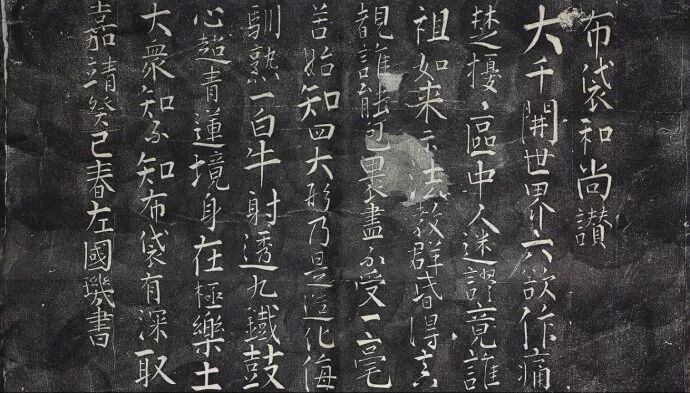 布袋和尚讃
大千開世界六欲作痛
楚擾〻區中人迷謬竟誰
祖如来示法教群昏得真
覩誰能包裹盡不受一毫
苦始知四大形乃是造化侮
馴熟一白牛射透九鐵鼓
心超青蓮境身在極樂土
大衆知不知布袋有深取
嘉靖癸巳春左國璣書